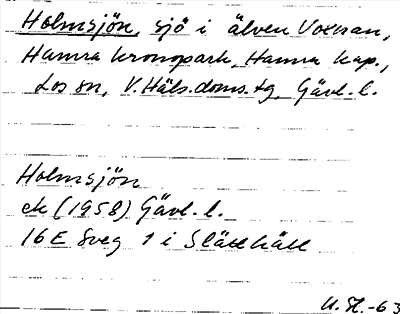 Holmsjön, sjö i älven Voxnan,
Hamra kronopark, Hamra kap.,
Los sn, V. Häls. doms. tg, Gävl. l.
Holmsjön
ek (1958) Gävl. l.
16E Sveg 1 i Slättkält
U. H. -63